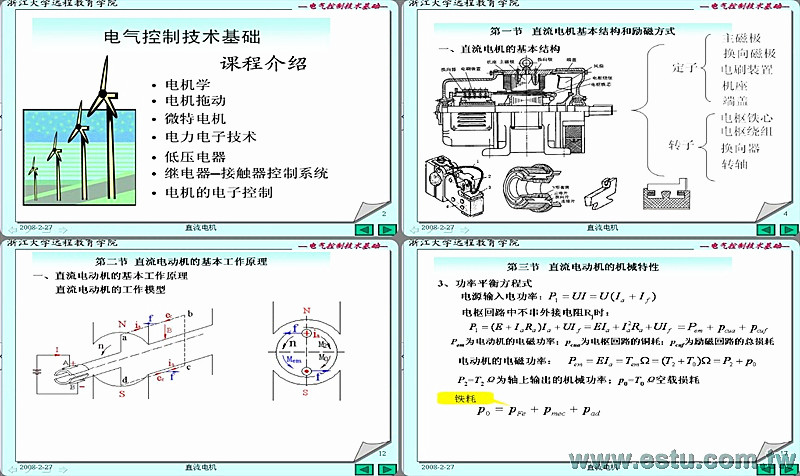 浙江大学远程教育学院
电气控制技术基础
电气控制技术基础
课程介绍
• 电机学
• 电机拖动
• 微特电机
• 电力电子技术
• 低压电器
• 继电器—接触器控制系统
• 电机的电子控制
2008-2-27
直流电机
2
浙江大学远程教育学院
电气控制技术基础
第一节 直流电机基本结构和励磁方式
一、直流电机的基本结构
定子
主磁极
换向磁极
电刷装置
机座
端盖
转子
电枢铁心
电枢绕组
换向器
转轴
2008-2-27
直流电机
4
浙江大学远程教育学院
电气控制技术基础
第二节 直流电动机的基本工作原理
一、直流电动机的基本工作原理
直流电动机的工作模型
N
S
a
b
c
d
n
A
B
I
N
S
f
n
Mem
2008-2-27
直流电机
12
浙江大学远程教育学院
电气控制技术基础
第三节 直流电动机的机械特性
3、功率平衡方程式
电源输入电功率：P₁ = UI = U(Iₐ + I_f)
电枢回路中不串外接电阻Rⱼ时：
P₁ = (E + IₐRₐ)Iₐ + UI_f = EIₐ + Iₐ²Rₐ + UI_f = P_em + p_cua + p_cuf
P_em为电动机的电磁功率；p_cua为电枢回路的铜耗；p_cuf为励磁回路的总损耗
电动机的电磁功率： P_em = EIₐ = T_emΩ = (T₂ + T₀)Ω = P₂ + p₀
P₂=T₂ Ω为轴上输出的机械功率；p₀=T₀ Ω空载损耗
铁耗
p₀ = p_Fe + p_mec + p_ad
2008-2-27
直流电机
www.estu.com.tw